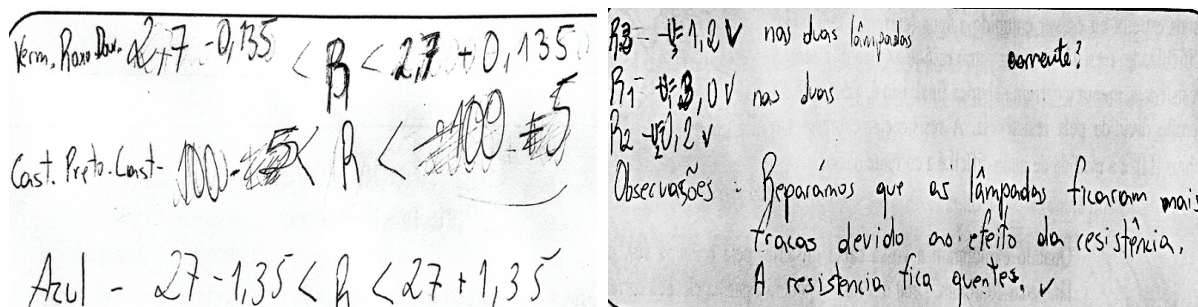 Verm. Roxo. Dou. 2,7 - 0,135 < R < 2,7 + 0,135
Cast. Preto. Cast - 100 - 5 < R < 100 + 5
Azul - 27 - 1,35 < R < 27 + 1,35
R3 - U = 1,2 V nas duas lâmpadas
corrente?
R1 - U = 3,0 V nas duas
R2 - U = 0,2 V
Observações - Reparámos que as lâmpadas ficaram mais
fracas devido ao efeito da resistência.
A resistencia fica quentes. ✓